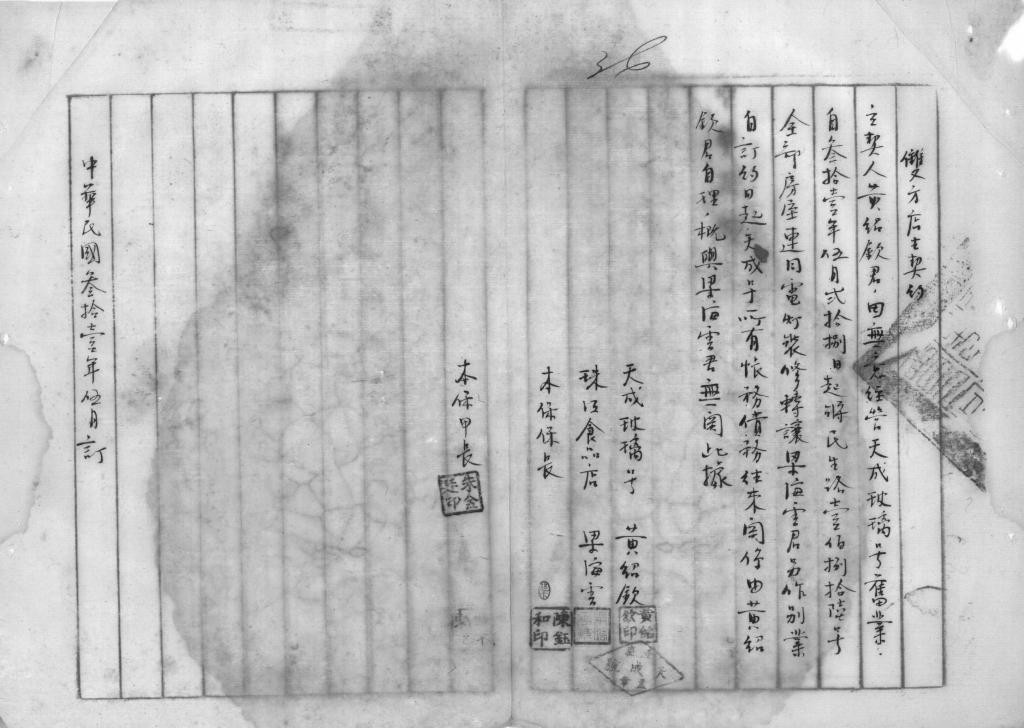 雙方店主契約
立契人黃紹欽君，因無意經營天成玻璃號舊業，
自叁拾壹年伍月弍拾捌日起將民生路壹佰捌拾陸号
全部房屋連同電灯裝修轉讓梁海雲君另作別業
自訂約日起天成号所有帳務債務往來関係由黃紹
欽君自理，概與梁海雲君無関此據
天成玻璃号 黃紹欽
珠江食品店 梁海雲
本保保長
本保甲長
中華民國叁拾壹年伍月訂
36
黃紹欽印
陳鈺和印